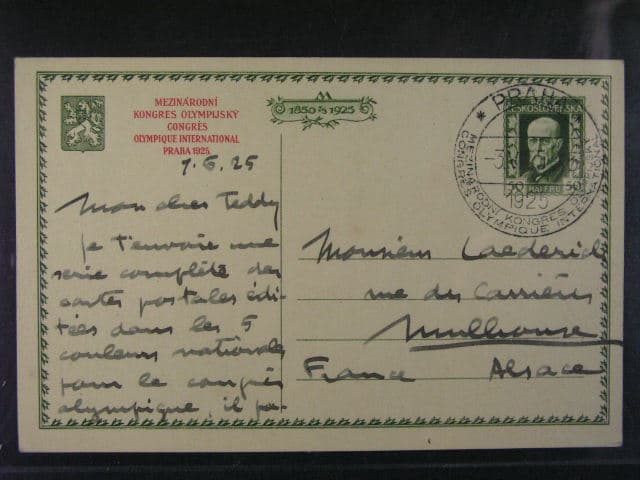 MEZINÁRODNÍ
KONGRES OLYMPIJSKÝ
CONGRÈS
OLYMPIQUE INTERNATIONAL
PRAHA 1925.
1850 1925
PRAHA
ČESKOSLOVENSKA
MEZINÁRODNÍ KONGRES OLYMPIJSKÝ
CONGRÈS OLYMPIQUE INTERNATIONAL
1925
50 HALÉŘŮ 50
7.6.25
Mon cher Teddy
je t'envoie une
serie complète des
cartes postales édi-
tées dans les 5
couleurs nationales
pour le congrès
olympique, il pa-
Monsieur Laederich
rue des Carrières
Mulhouse
France Alsace